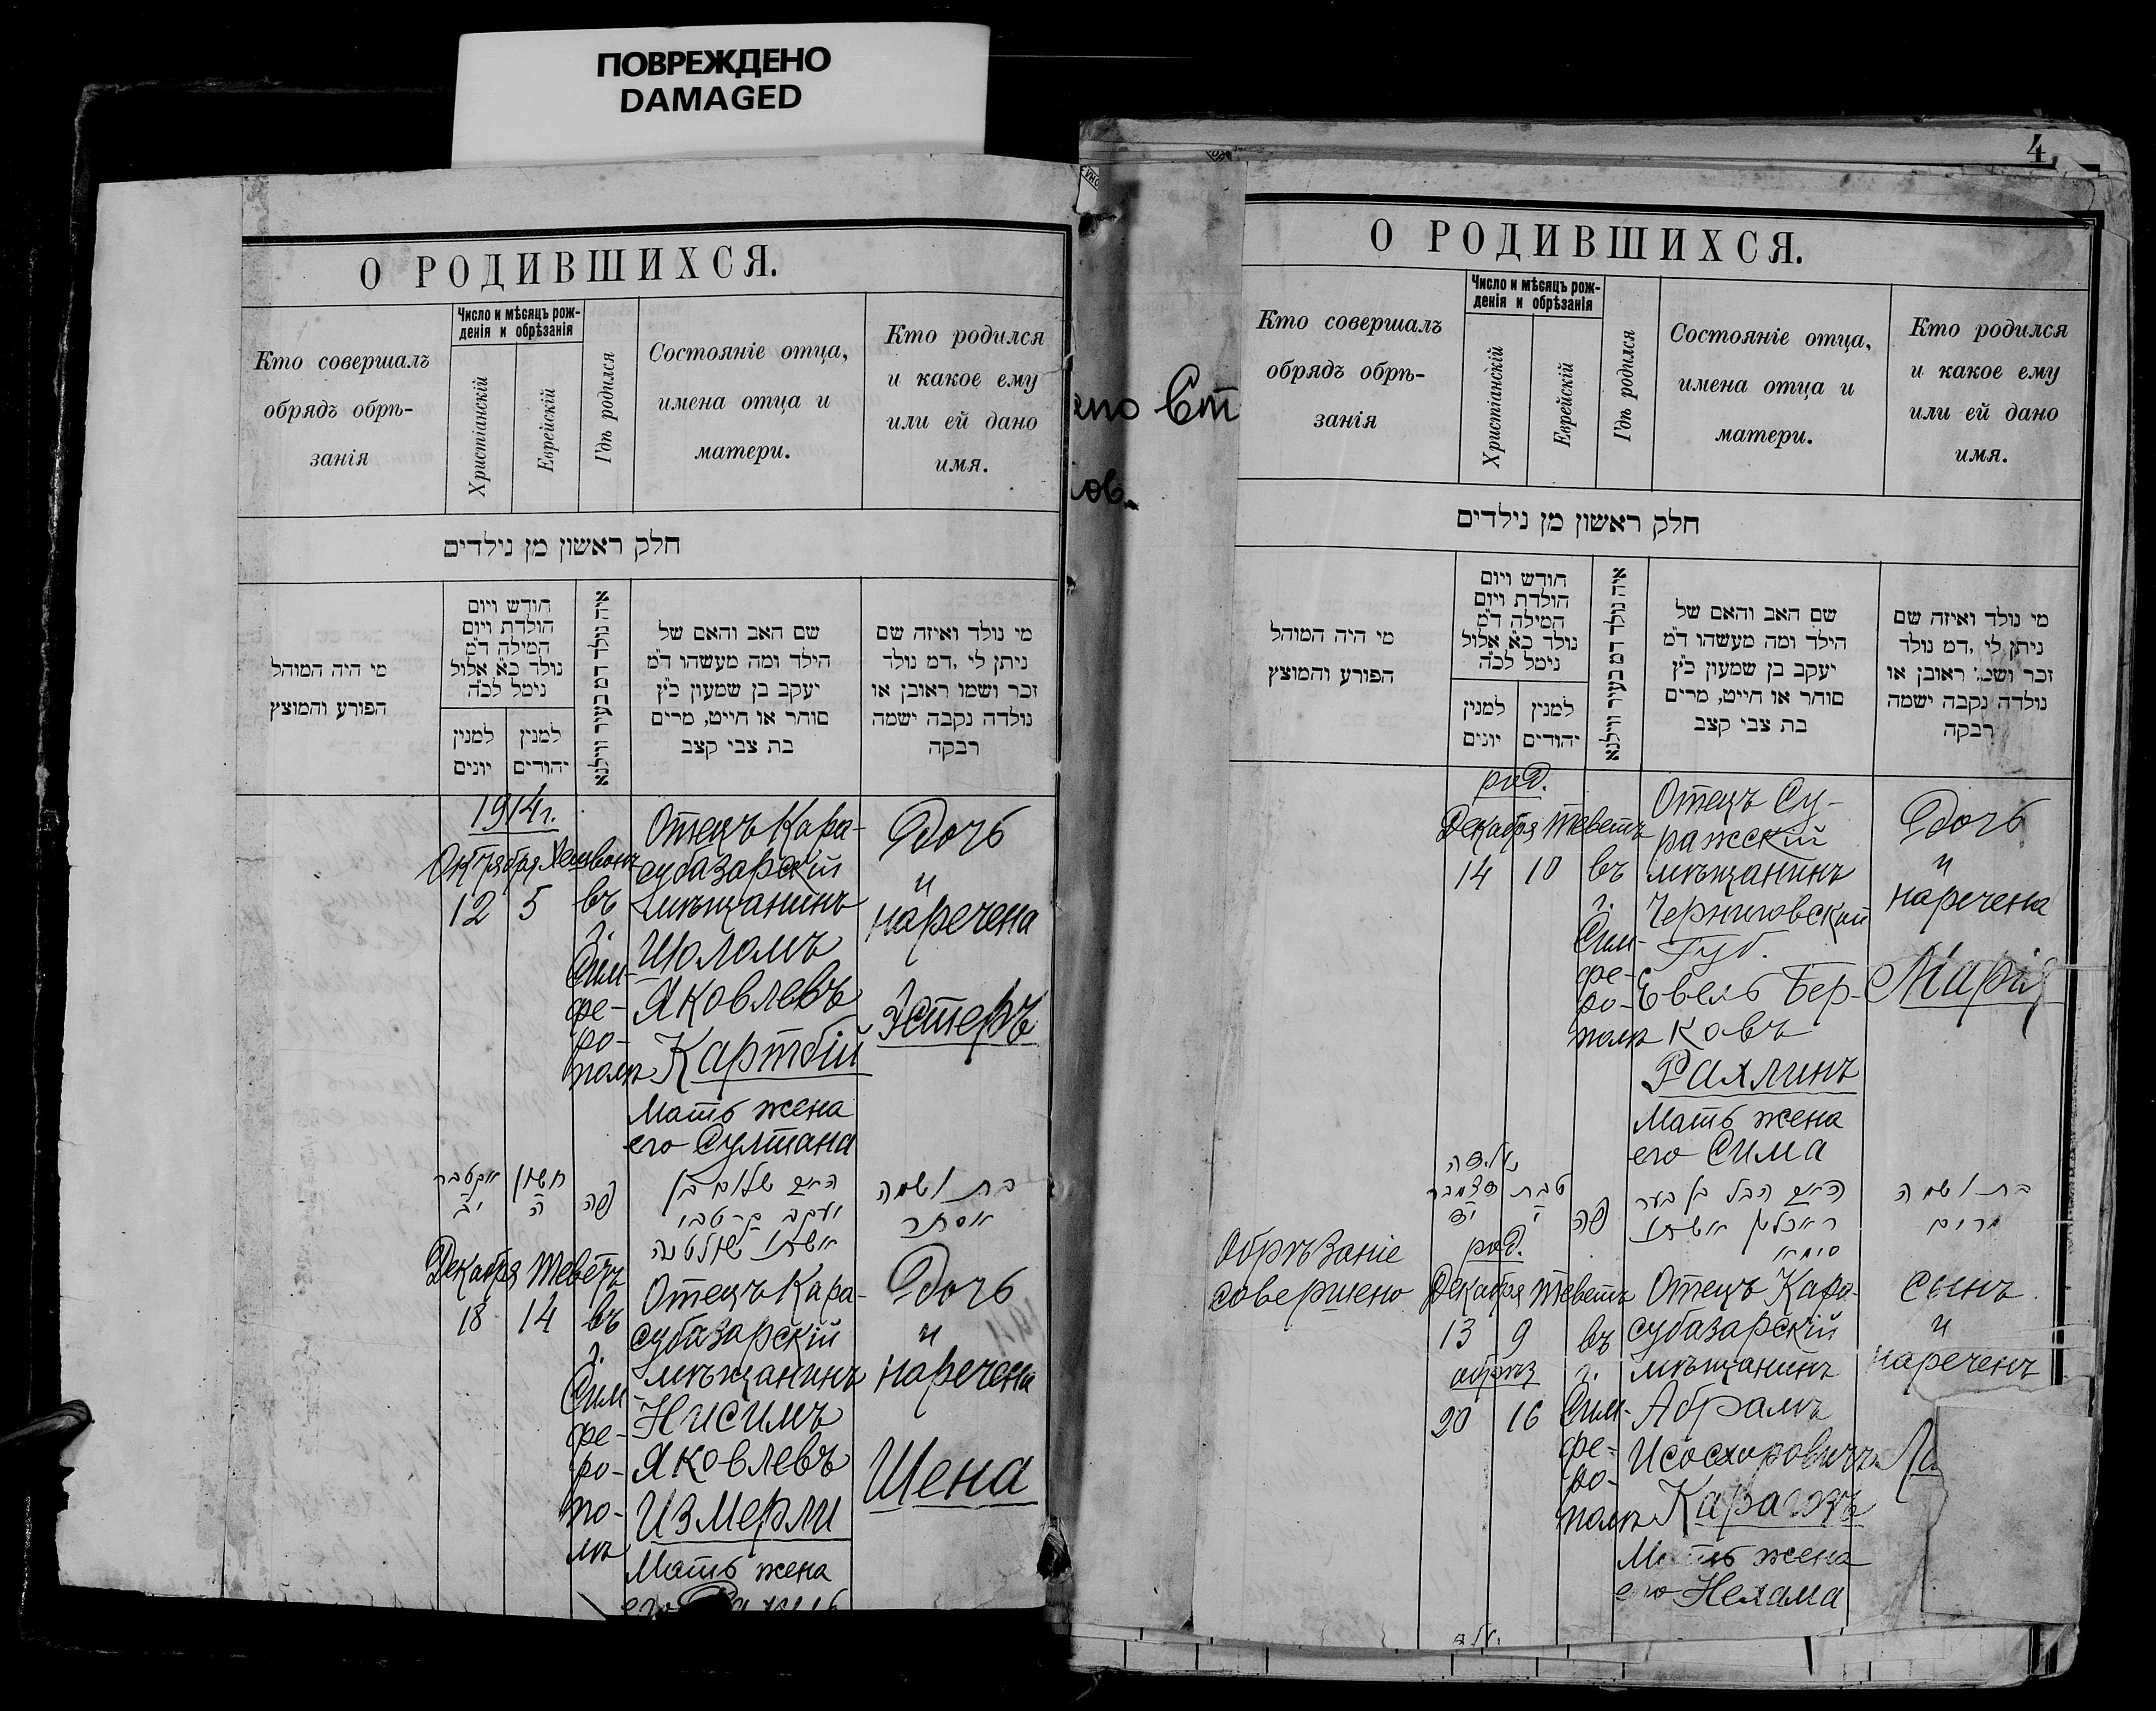 ПОВРЕЖДЕНО
DAMAGED
О РОДИВШИХСЯ.
Кто совершалъ
обрядъ обрѣ-
занія
Число и мѣсяцъ рож-
денія и обрѣзанія
Христіанскій
Еврейскій
Гдѣ родился
Состояніе отца,
имена отца и
матери.
Кто родился
и какое ему
или ей дано
имя.
חלק ראשון מן נילדים
מי היה המוהל
הפורע והמוצץ
חודש ויום
הולדת ויום
המילה ד"מ
נולד כ"א אלול
נימל לכ"ה
למנין
יונים
למנין
יהודים
איה נולד דמ בעיר ווילנא
שם האב והאם של
הילד ומה מעשהו ד"מ
יעקב בן שמעון כ"ץ
סוחר או חייט, מרים
בת צבי קצב
מי נולד ואיזה שם
ניתן לי, דמ נולד
זכר ושמו ראובן או
נולדה נקבה ישמה
רבקה
1914 г.
Октября Хешвонъ
12 5
въ
г.
Сим-
фе-
ро-
полѣ
Отецъ Кара-
субазарскій
мѣщанинъ
Шоломъ
Яковлевъ
Картбій
Мать жена
его Султана
Дочь
и
наречена
Эстеръ
אקטבר
יב
חשון
ה
פה
האב שלום בן
יעקב קרטבי
אשתו שולטנה
בת ושמה
אסתר
Декабря Теветъ
18 14
въ
г.
Сим
фе-
ро-
по-
лѣ
Отецъ Кара-
субазарскій
мѣщанинъ
Нисимъ
Яковлевъ
Измерли
Мать жена
его Рахиль
Дочь
и
наречена
Шена
ено Ст
ов.
4
О РОДИВШИХСЯ.
Кто совершалъ
обрядъ обрѣ-
занія
Число и мѣсяцъ рож-
денія и обрѣзанія
Христіанскій
Еврейскій
Гдѣ родился
Состояніе отца,
имена отца и
матери.
Кто родился
и какое ему
или ей дано
имя.
חלק ראשון מן נילדים
מי היה המוהל
הפורע והמוצץ
חודש ויום
הולדת ויום
המילה ד"מ
נולד כ"א אלול
נימל לכ"ה
למנין
יונים
למנין
יהודים
איה נולד דמ בעיר ווילנא
שם האב והאם של
הילד ומה מעשהו ד"מ
יעקב בן שמעון כ"ץ
סוחר או חייט, מרים
בת צבי קצב
מי נולד ואיזה שם
ניתן לי, דמ נולד
זכר ושמו ראובן או
נולדה נקבה ישמה
רבקה
род.
Декабря Теветъ
14 10
въ
г.
Сим-
фе-
ро-
полѣ
Отецъ Су-
ражскій
мѣщанинъ
Черниговской
Губ.
Евель Бер-
ковъ
Рахлинъ
Мать жена
его Сима
Дочь
и
наречена
Марія
דצמבר
יד
טבת
י
פה
האב הבל בן בער
ראכלין אשתו
סימא
בת ושמה
מרים
Обрѣзаніе
совершено
род.
Декабря Теветъ
13 9
обрѣз
20 16
въ
г.
Сим-
фе-
ро-
полѣ
Отецъ Кара-
субазарскій
мѣщанинъ
Абрамъ
Исосхаровичъ
Карагозъ
Мать жена
его Нехама
Сынъ
и
нареченъ